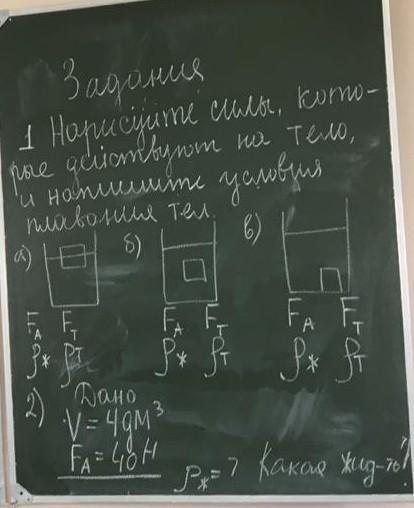 Задания
1 Нарисуйте силы, кото-
рые действуют на тело,
и напишите условия
плавания тел.
а) б) в)
F_A F_T F_A F_T F_A F_T
ρ_ж ρ_T ρ_ж ρ_T ρ_ж ρ_T
2) Дано
V = 4дм³
F_A = 40 Н
ρ_ж = ? Какая жид-ть?